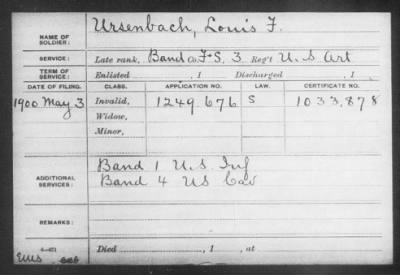 NAME OF SOLDIER: Ursenbach, Louis F.
SERVICE: Late rank, Band Co. F+S, 3 Reg't U.S. Art
TERM OF SERVICE: Enlisted , 1 Discharged , 1
DATE OF FILING. CLASS. APPLICATION NO. LAW. CERTIFICATE NO.
1900 May 3 Invalid, 1249.676 S 1033.878
Widow,
Minor,
ADDITIONAL SERVICES: Band 1 U.S. Inf
Band 4 US Cav
REMARKS:
Died , 1 , at